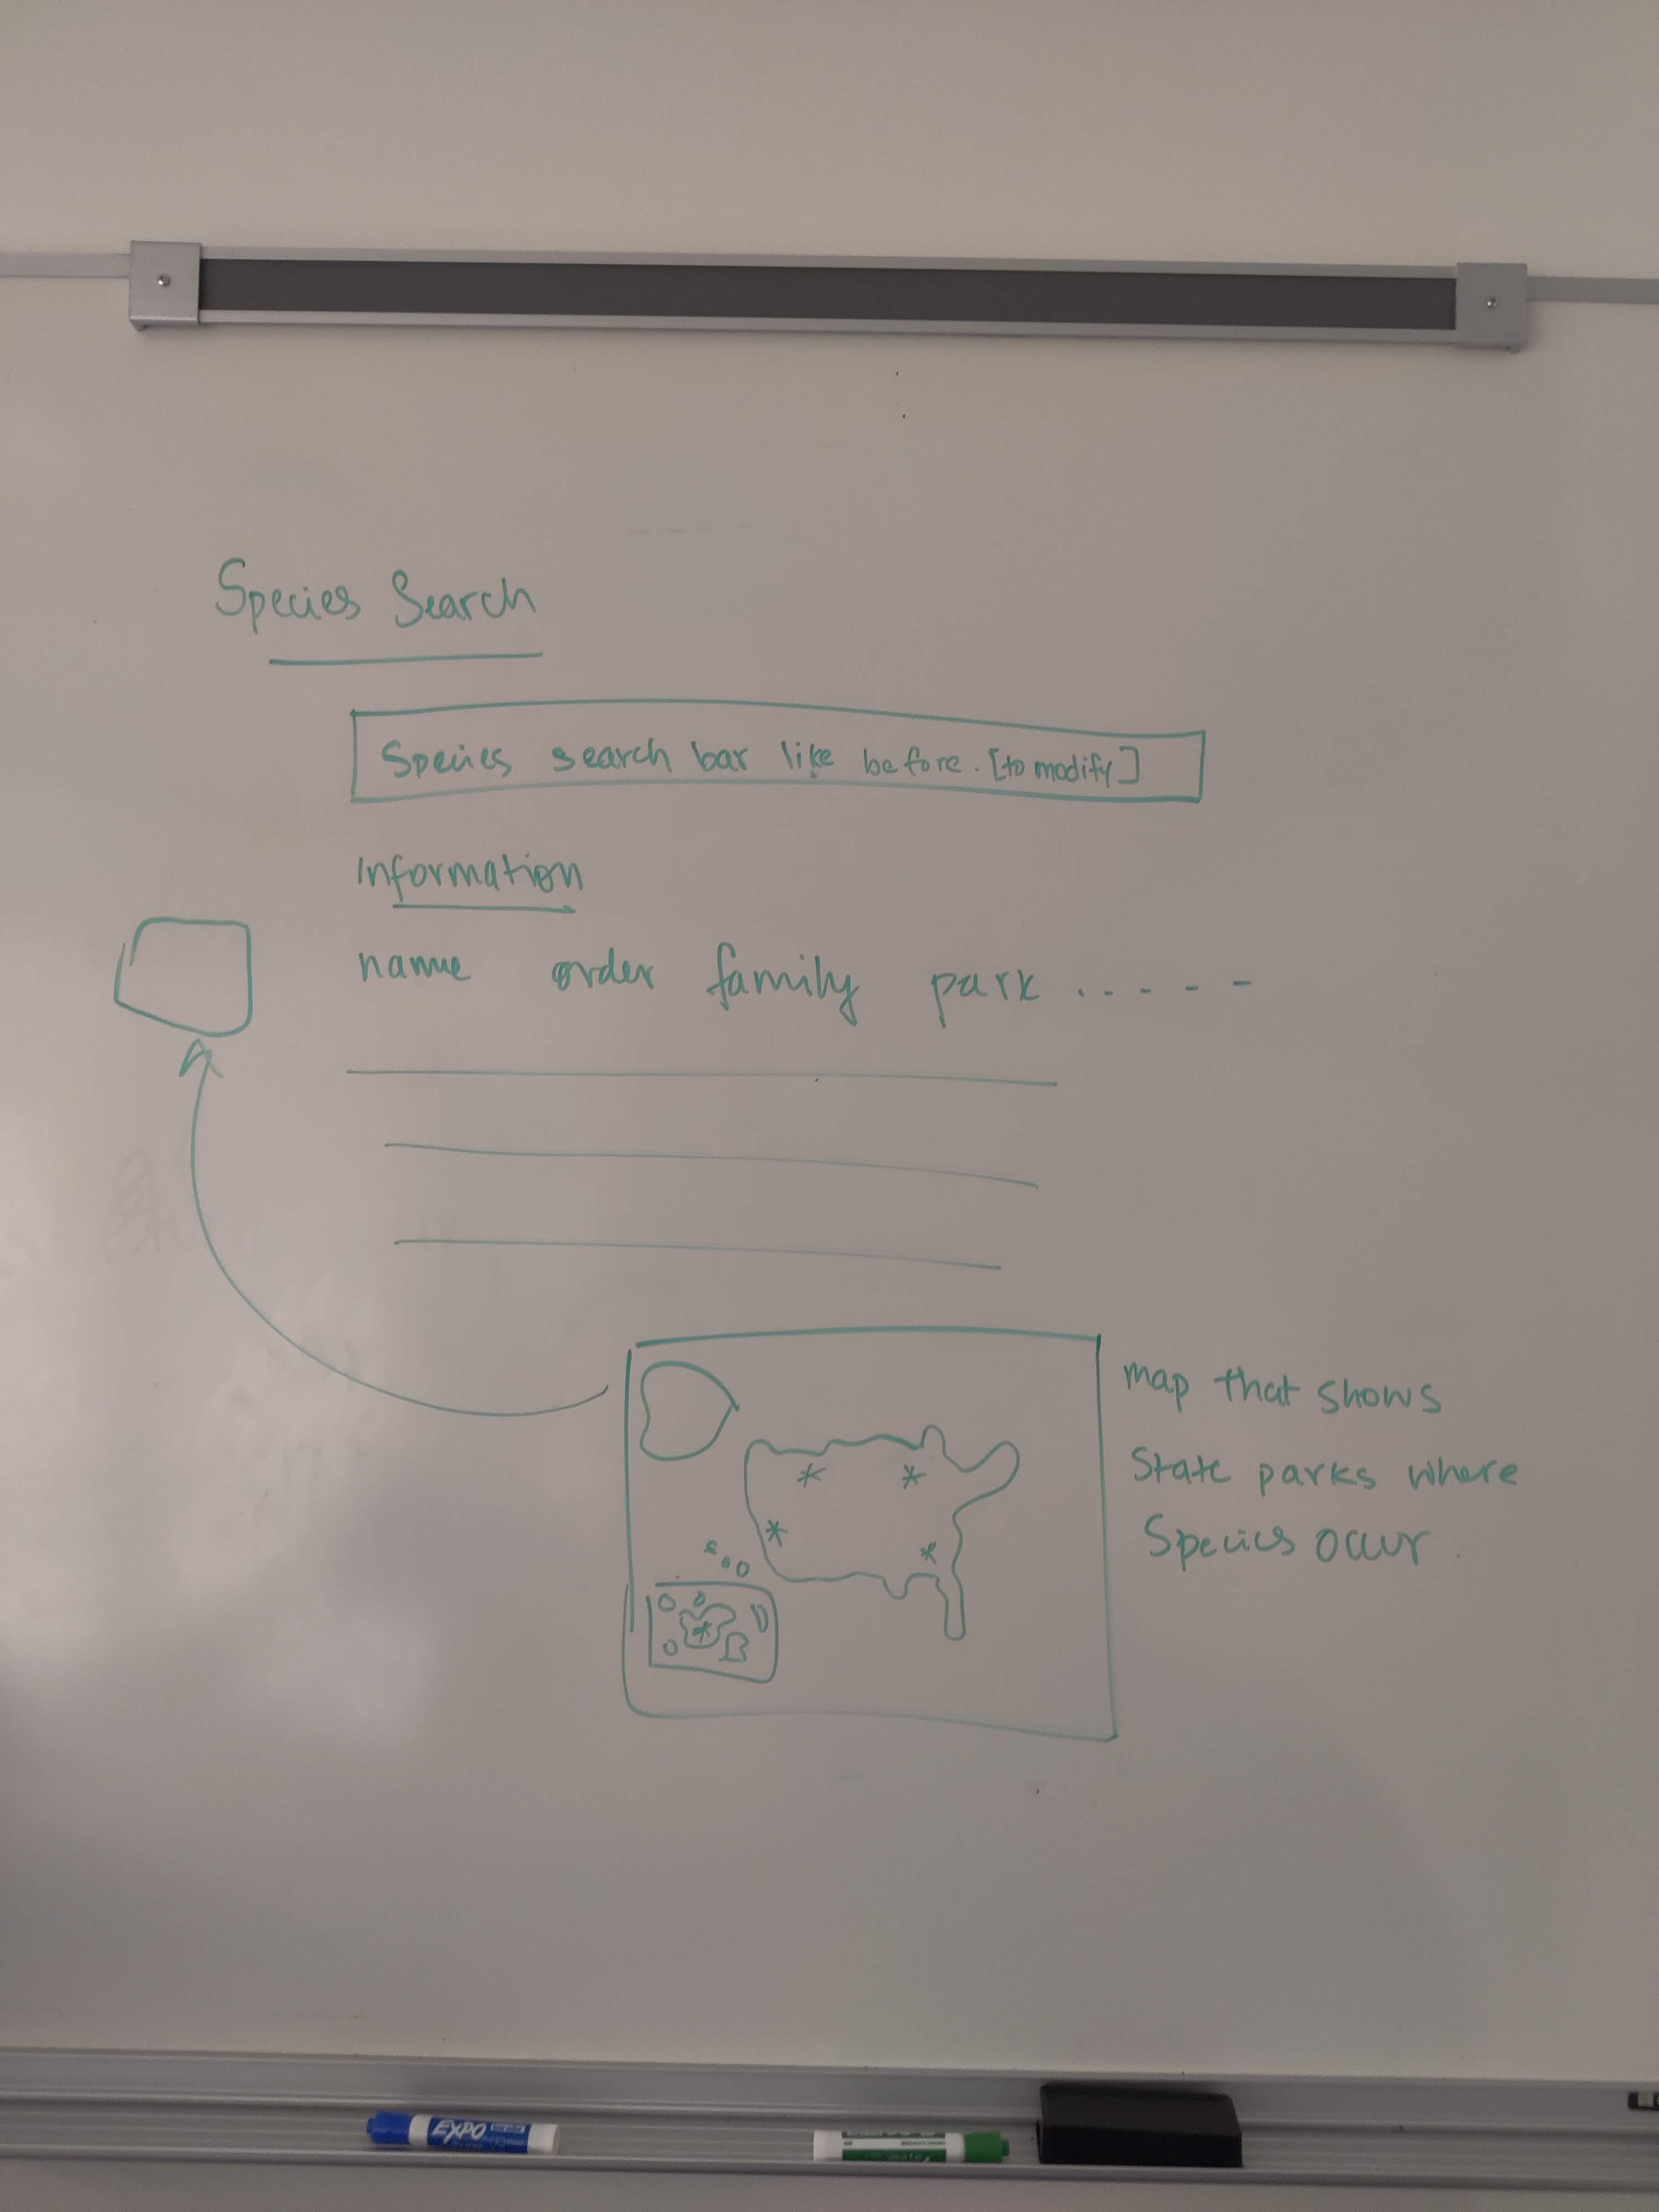 Species Search
Species search bar like before. [to modify]
Information
name order family park . . . - - -
map that shows
State parks where
Species occur.
EXPO